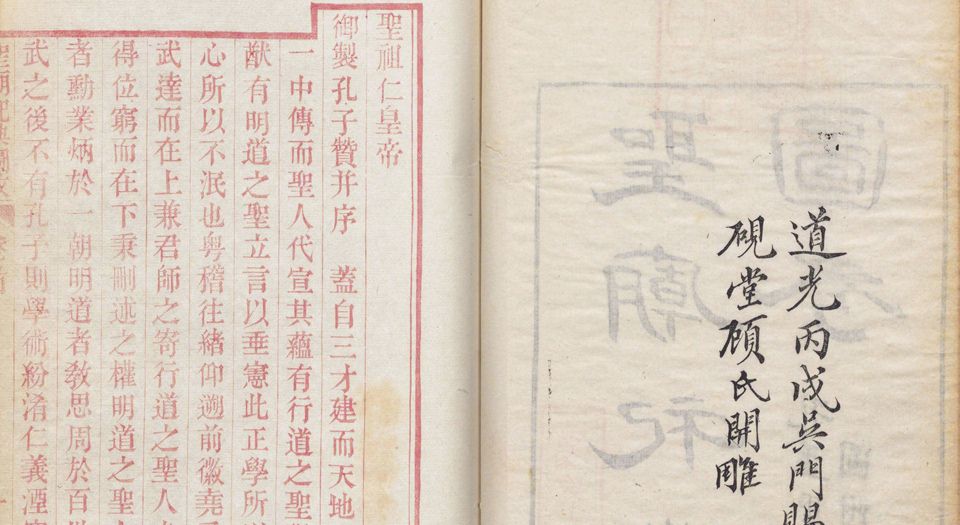 道光丙戌吳門賜
硯堂顧氏開雕
聖祖仁皇帝
御製孔子贊并序 蓋自三才建而天地
一中傳而聖人代宣其蘊有行道之聖
猷有明道之聖立言以垂憲此正學所
心所以不泯也粵稽往緒仰遡前徽堯
武達而在上兼君師之寄行道之聖人
得位窮而在下秉刪述之權明道之聖
者勳業炳於一朝明道者敎思周於百
武之後不有孔子則學術紛淆仁義湮
聖廟祀典圖攷